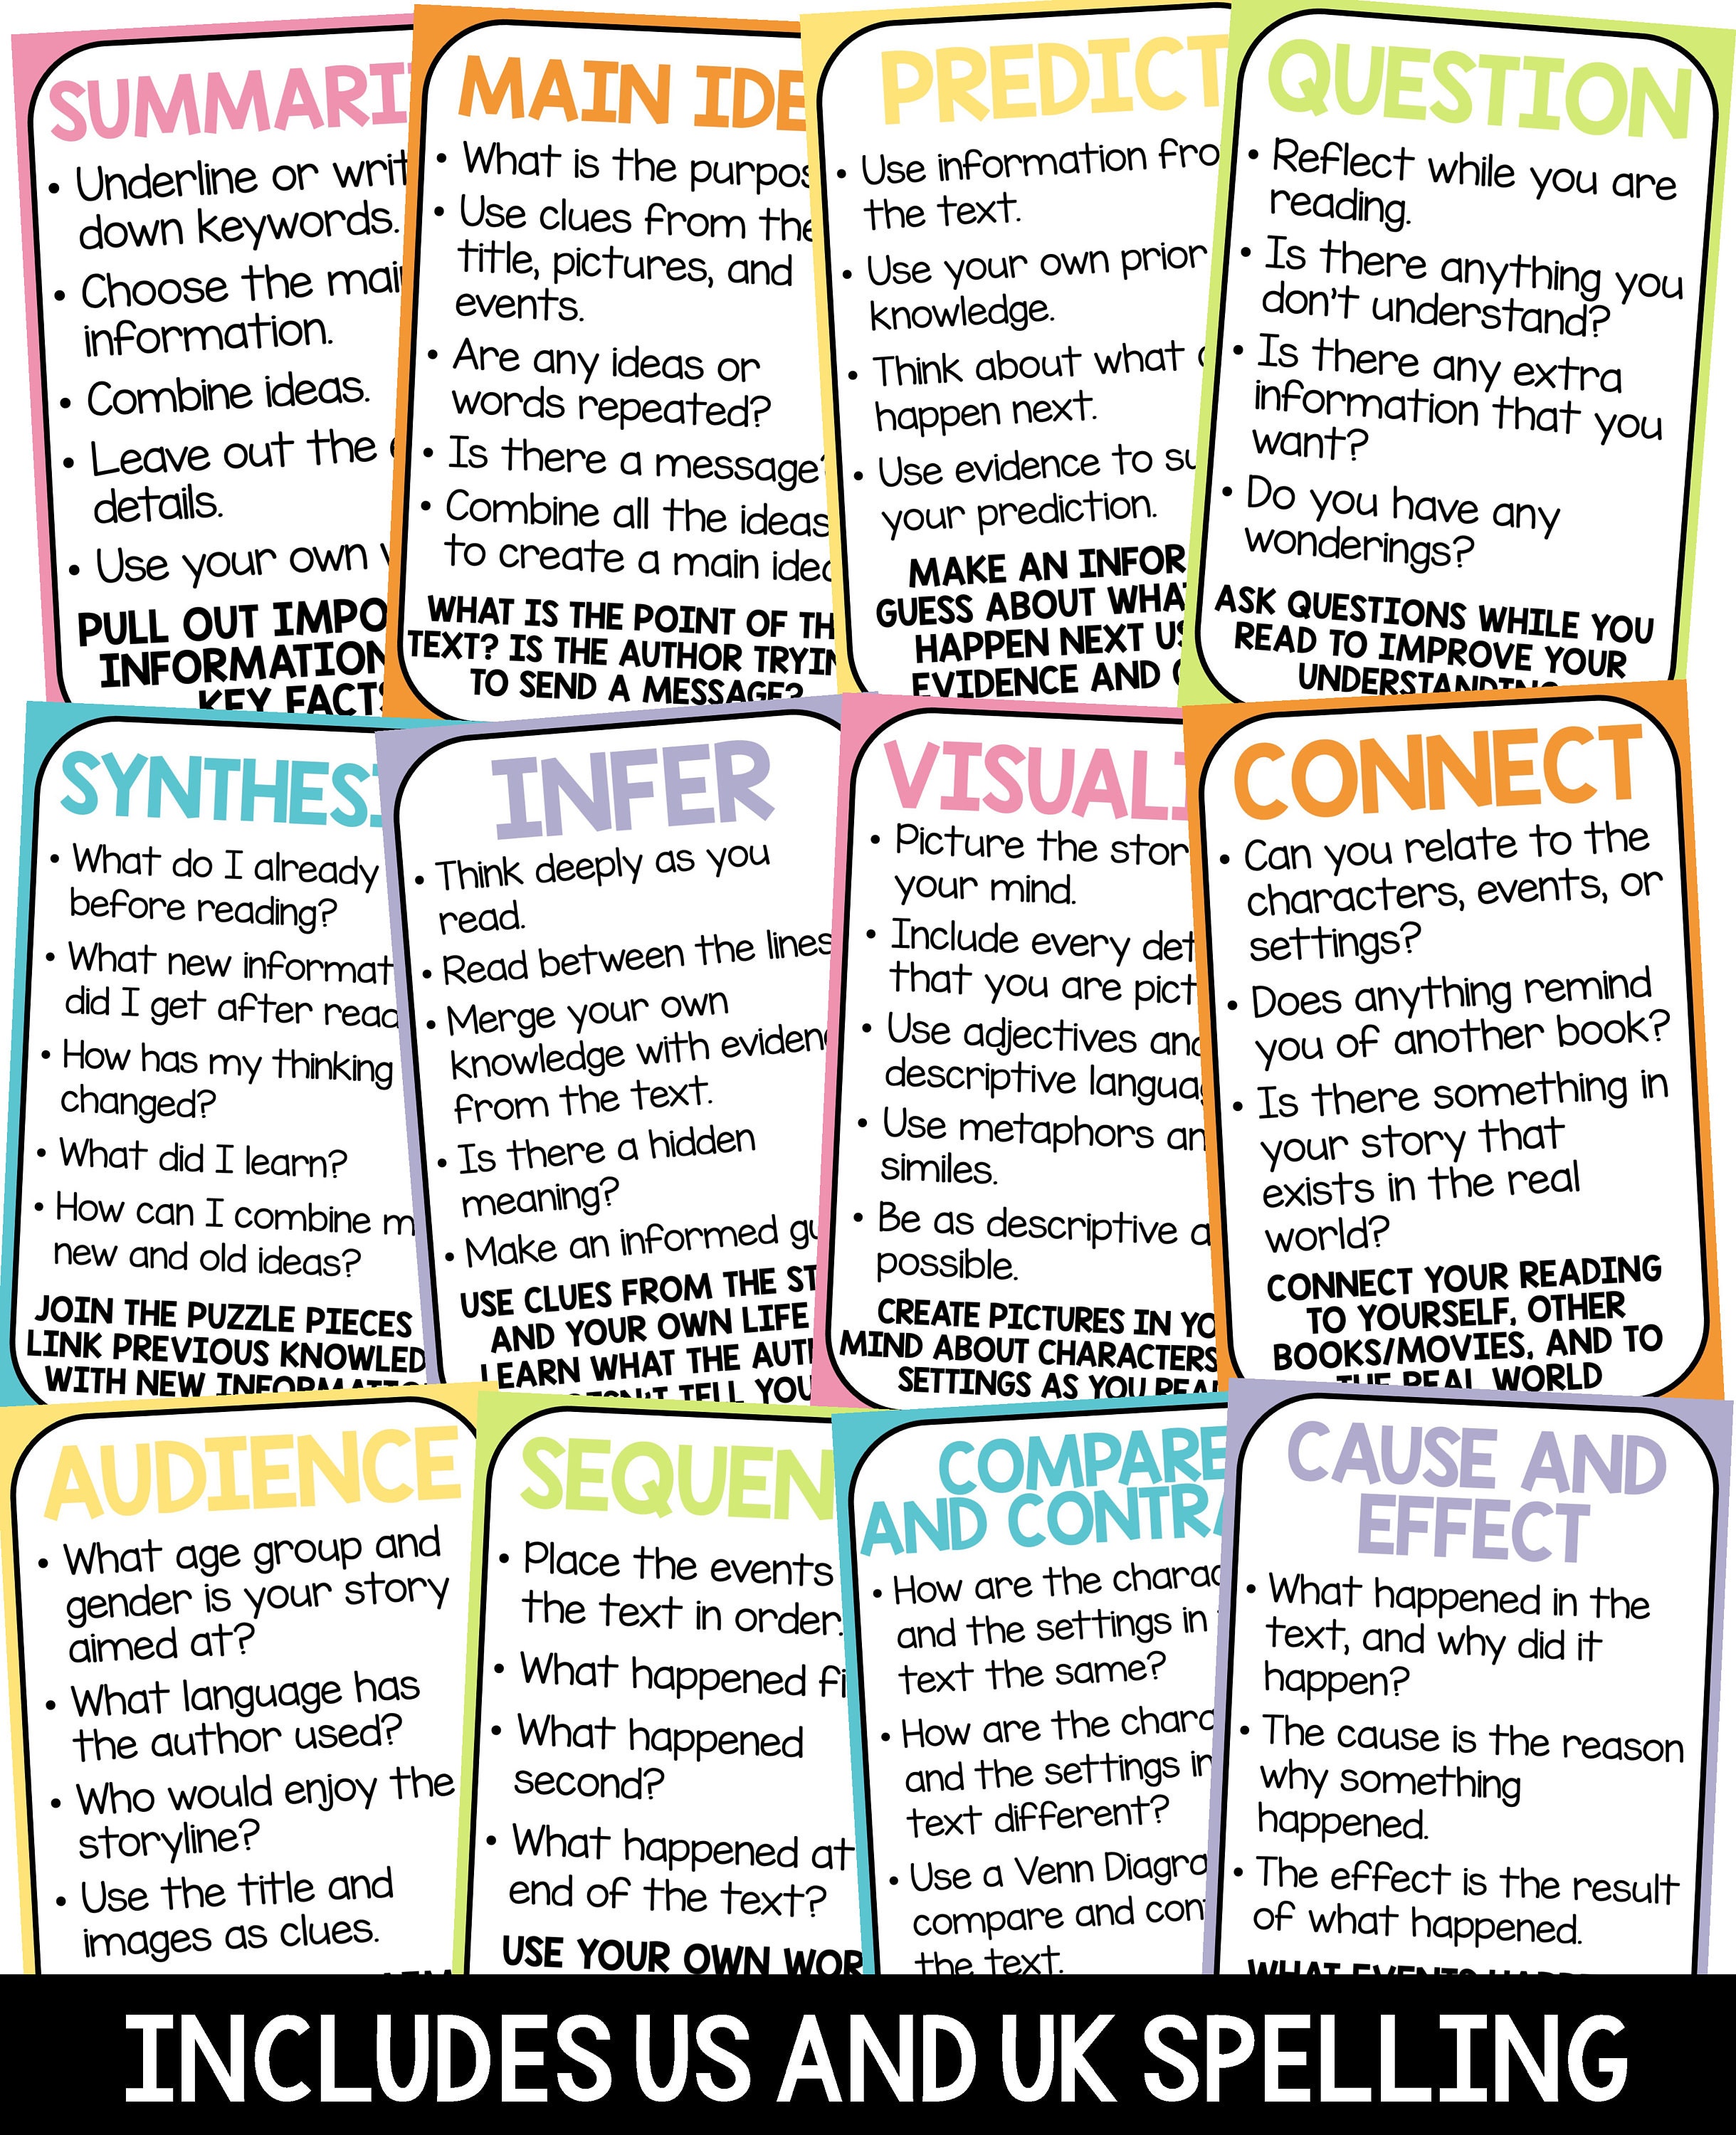 SUMMARI
• Underline or writ
down keywords.
• Choose the mai
information.
• Combine ideas.
• Leave out the
details.
• Use your own
PULL OUT IMPO
INFORMATION
KEY FACTS
MAIN IDE
• What is the purpos
• Use clues from the
title, pictures, and
events.
• Are any ideas or
words repeated?
• Is there a message?
• Combine all the ideas
to create a main idea
WHAT IS THE POINT OF TH
TEXT? IS THE AUTHOR TRYIN
TO SEND A MESSAGE?
PREDICT
• Use information fro
the text.
• Use your own prior
knowledge.
• Think about what
happen next.
• Use evidence to su
your prediction.
MAKE AN INFOR
GUESS ABOUT WHA
HAPPEN NEXT US
EVIDENCE AND
QUESTION
• Reflect while you are
reading.
• Is there anything you
don't understand?
• Is there any extra
information that you
want?
• Do you have any
wonderings?
ASK QUESTIONS WHILE YOU
READ TO IMPROVE YOUR
UNDERSTANDING
SYNTHESI
• What do I already
before reading?
• What new informat
did I get after read
• How has my thinking
changed?
• What did I learn?
• How can I combine m
new and old ideas?
JOIN THE PUZZLE PIECES
LINK PREVIOUS KNOWLED
WITH NEW INFORMATIO
INFER
• Think deeply as you
read.
• Read between the lines
• Merge your own
knowledge with eviden
from the text.
• Is there a hidden
meaning?
• Make an informed gu
USE CLUES FROM THE ST
AND YOUR OWN LIFE
LEARN WHAT THE AUT
TELL YOU
VISUALI
• Picture the stor
your mind.
• Include every det
that you are pict
• Use adjectives and
descriptive languag
• Use metaphors an
similes.
• Be as descriptive a
possible.
CREATE PICTURES IN YO
MIND ABOUT CHARACTERS
SETTINGS AS YOU REA
CONNECT
• Can you relate to the
characters, events, or
settings?
• Does anything remind
you of another book?
• Is there something in
your story that
exists in the real
world?
CONNECT YOUR READING
TO YOURSELF, OTHER
BOOKS/MOVIES, AND TO
THE REAL WORLD
AUDIENCE
• What age group and
gender is your story
aimed at?
• What language has
the author used?
• Who would enjoy the
storyline?
• Use the title and
images as clues.
SEQUEN
• Place the events
the text in order.
• What happened fi
• What happened
second?
• What happened at
end of the text?
USE YOUR OWN WOR
COMPARE
AND CONTRA
• How are the charac
and the settings in
text the same?
• How are the chara
and the settings in
text different?
• Use a Venn Diagra
compare and con
the text.
CAUSE AND
EFFECT
• What happened in the
text, and why did it
happen?
• The cause is the reason
why something
happened.
• The effect is the result
of what happened.
WHAT EVENTS HAPPE
INCLUDES US AND UK SPELLING